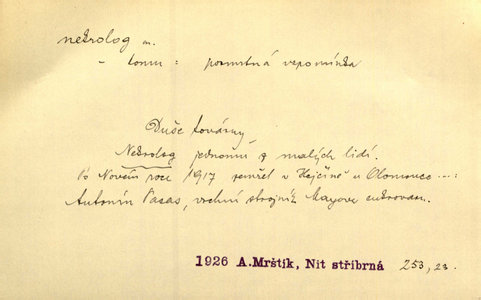 nekrolog m.
- tomu : posmrtná vzpomínka
Duše továrny
Nekrolog jednomu z malých lidí.
Po Novém roce 1917 zemřel v Hejčíně u Olomouce ...:
Antonín Pasas, vrchní strojník Mayova cukrovaru.
1926 A.Mrštík, Nit stříbrná 253, 23.